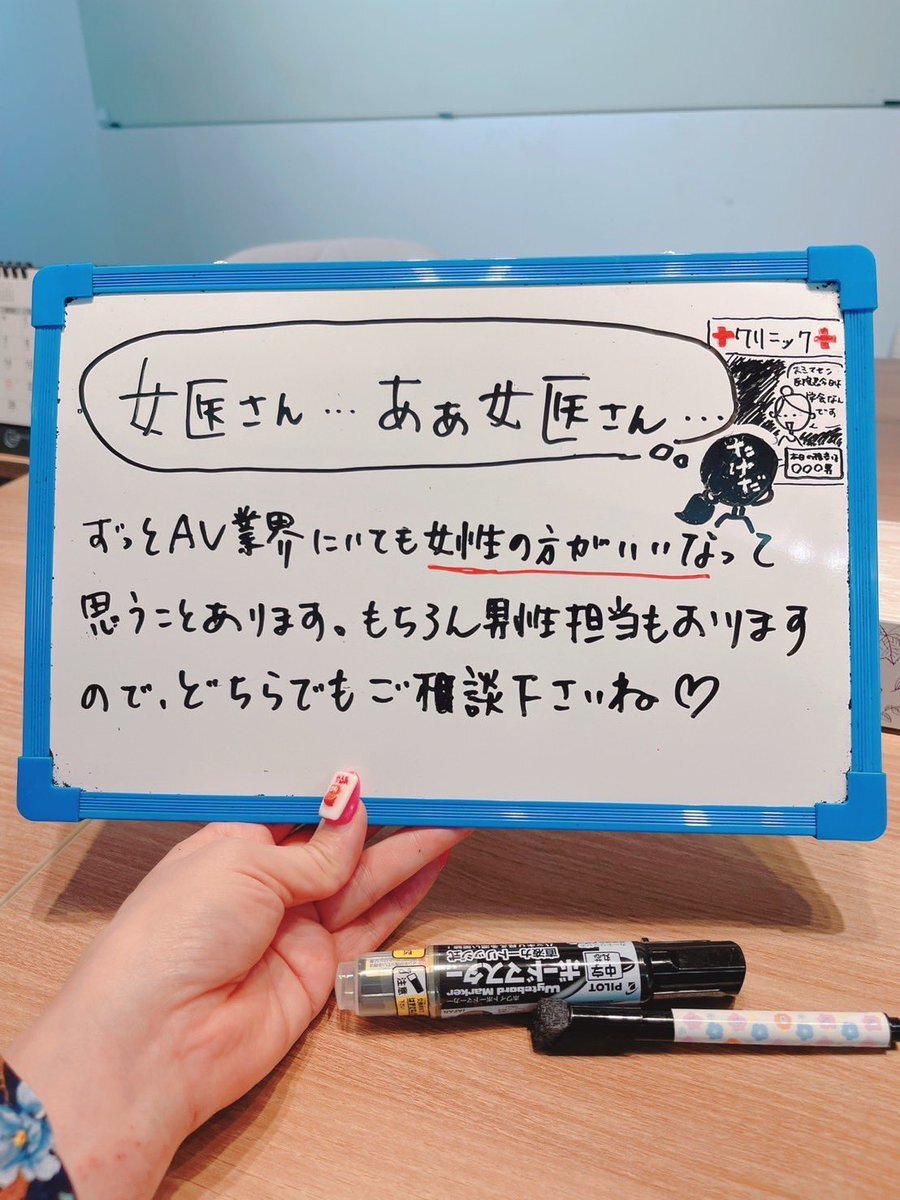 女医さん… あぁ女医さん…
ずっとAV業界にいても女性の方がいいなって
思うことあります。もちろん男性担当もおります
ので、どちらでもご相談下さいね♡
+クリニック+
学会なん
です
本日の担当は
〇〇〇男
たけだ
PILOT
中字
丸芯
ボードマスター
Wyteboard Marker
ホワイトボードマーカー
直液カートリッジ式
注意